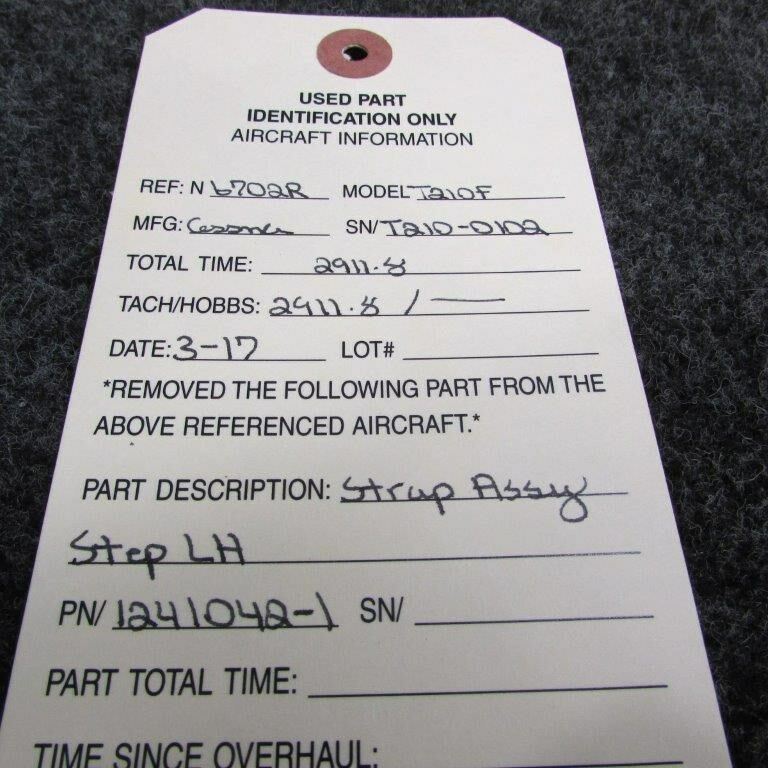 USED PART
IDENTIFICATION ONLY
AIRCRAFT INFORMATION
REF: N 6702R MODEL T210F
MFG: Cessna SN/ T210-0102
TOTAL TIME: 2911.8
TACH/HOBBS: 2911.8 / —
DATE: 3-17 LOT#
*REMOVED THE FOLLOWING PART FROM THE
ABOVE REFERENCED AIRCRAFT.*
PART DESCRIPTION: Strap Assy
Step LH
PN/ 1241042-1 SN/
PART TOTAL TIME:
TIME SINCE OVERHAUL: